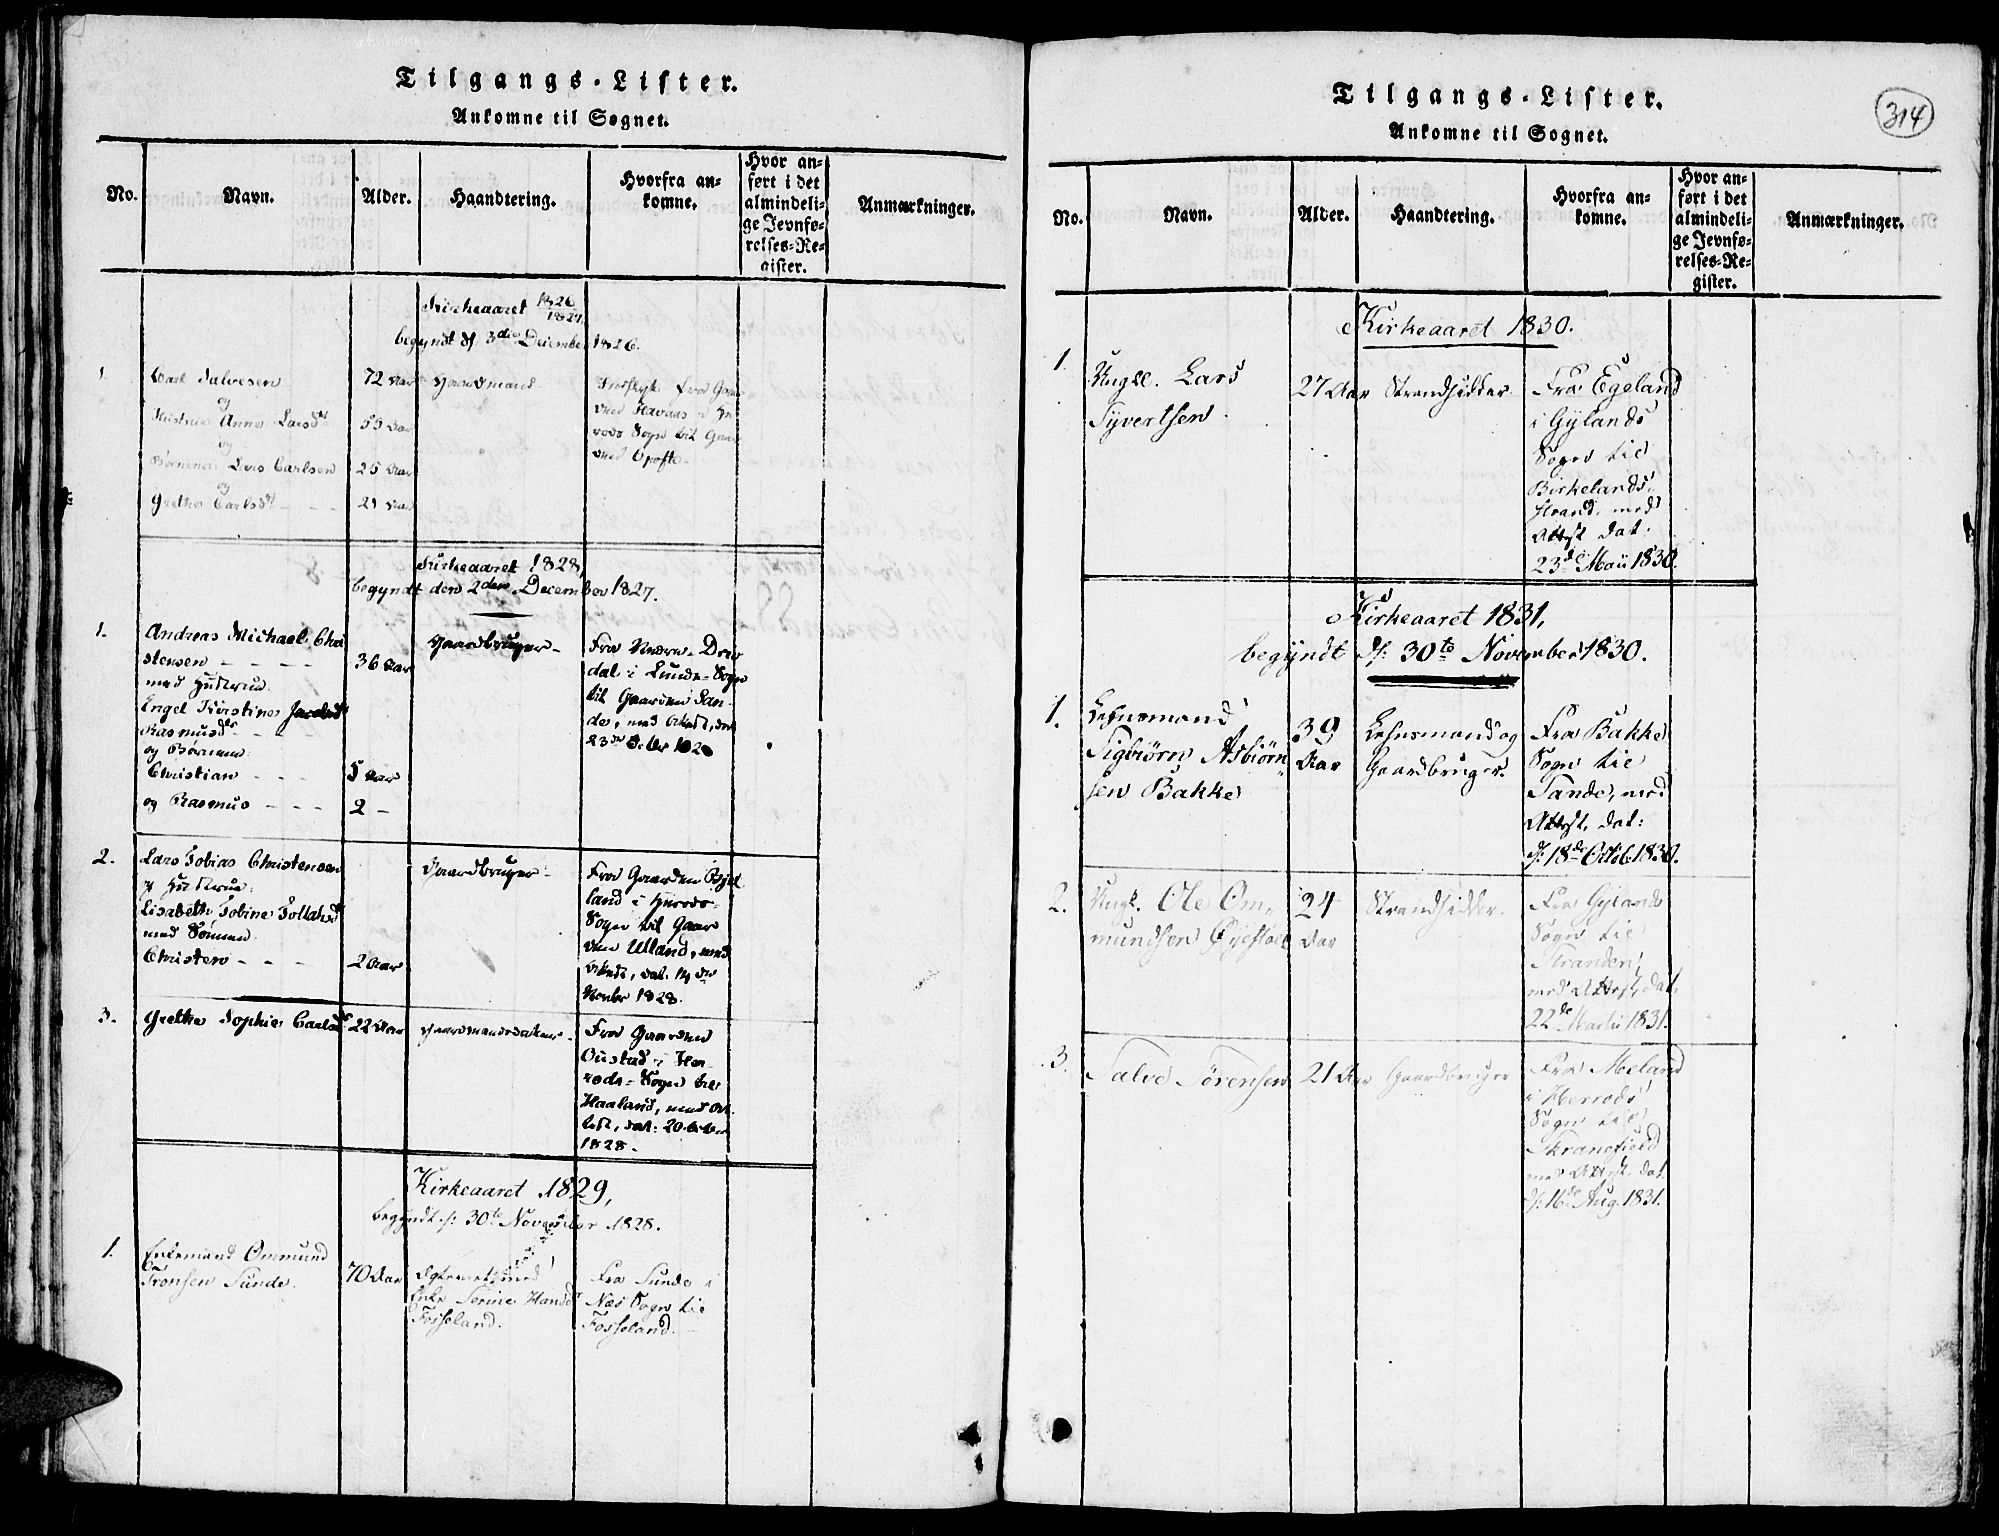 Tilgangs-Lister.
Ankomne til Sognet.
No.
Navn.
Alder.
Haandtering.
Hvorfra an-
komne.
Hvor an-
ført i det
almindeli-
ge Jevnfø-
relses-Re-
gister.
Anmærkninger.
Kirkeaaret 1826/1827,
begyndt d. 3die December 1826.
1.
Carl Salvesen
og
Hustrue Anne Larsdt
og
Børnene: Lars Carlsen
og
Grethe Carlsdt - - -
72 Aar
55 Aar
25 Aar
21 Aar
Huusmand
fra
Sogn til
Kirkeaaret 1828,
begyndt den 2den December 1827.
1.
Andreas Michael Chri
stensen - - - -
med Hustrue
Engel Kirstine
Rasmusdt - - -
og Børnene:
Christian - - -
og Rasmus - - -
36 Aar
5 Aar
2 -
Gaardbruger -
Fra Nedre-Drag
dal i Lunde-Sogn
til Gaarden San-
de, med
2.
Lars Tobias Christensen
og Hustrue:
Lisabeth Tobine Tollaksdt
med Sønnen
Christen - - -
2 Aar
Gaardbruger -
Fra Gaarden
land i Herreds-
Sogn til Gaar
den Ulland, med
dat. 14de
Novbr 1828.
3.
Grethe Sophie Carlsdt
22 Aar
Fra Gaarden
Oustad i Her-
reds-Sogn til
Haaland, med At-
test, dat: 20
1828.
Kirkeaaret 1829,
begyndt d: 30te November 1828.
1.
Enkemand Ommund
Tronsen Sunde.
70 Aar
Ægteviet med
Enke Serine Hansdt
Fosseland.
Fra Sunde i
Næs Sogn til
Fosseland.
314
Tilgangs-Lister.
Ankomne til Sognet.
No.
Navn.
Alder.
Haandtering.
Hvorfra an-
komne.
Hvor an-
ført i det
almindeli-
ge Jevnfø-
relses-Re-
gister.
Anmærkninger.
Kirkeaaret 1830.
1
Ungk. Lars
Syvertsen
27 Aar
Strandsidder
Fra Egeland
i Gylands
Sogn til
Birkelands
strand, med
Attest dat.
23de Maii 1830.
Kirkeaaret 1831,
begyndt d: 30te November 1830.
1.
Lehnsmand
Sigbiørn Asbiørn
sen Bakke
39
Aar
Lehnsmand og
Gaardbruger
Fra Bakke
Sogn til
Sande, med
Attest, dat:
d: 18de Octob. 1830.
2.
Ungk. Ole Om-
mundsen Øyestøl
24
Aar
Strandsidder.
Fra Gylands
Sogn til
Stranden,
med Attest, dat.
22de Martii 1831.
3.
Salve Sørensen
21 Aar
Gaardbruger
Fra Meland
i Herreds
Sogn til
med Attest dat
d: 16de Aug. 1831.